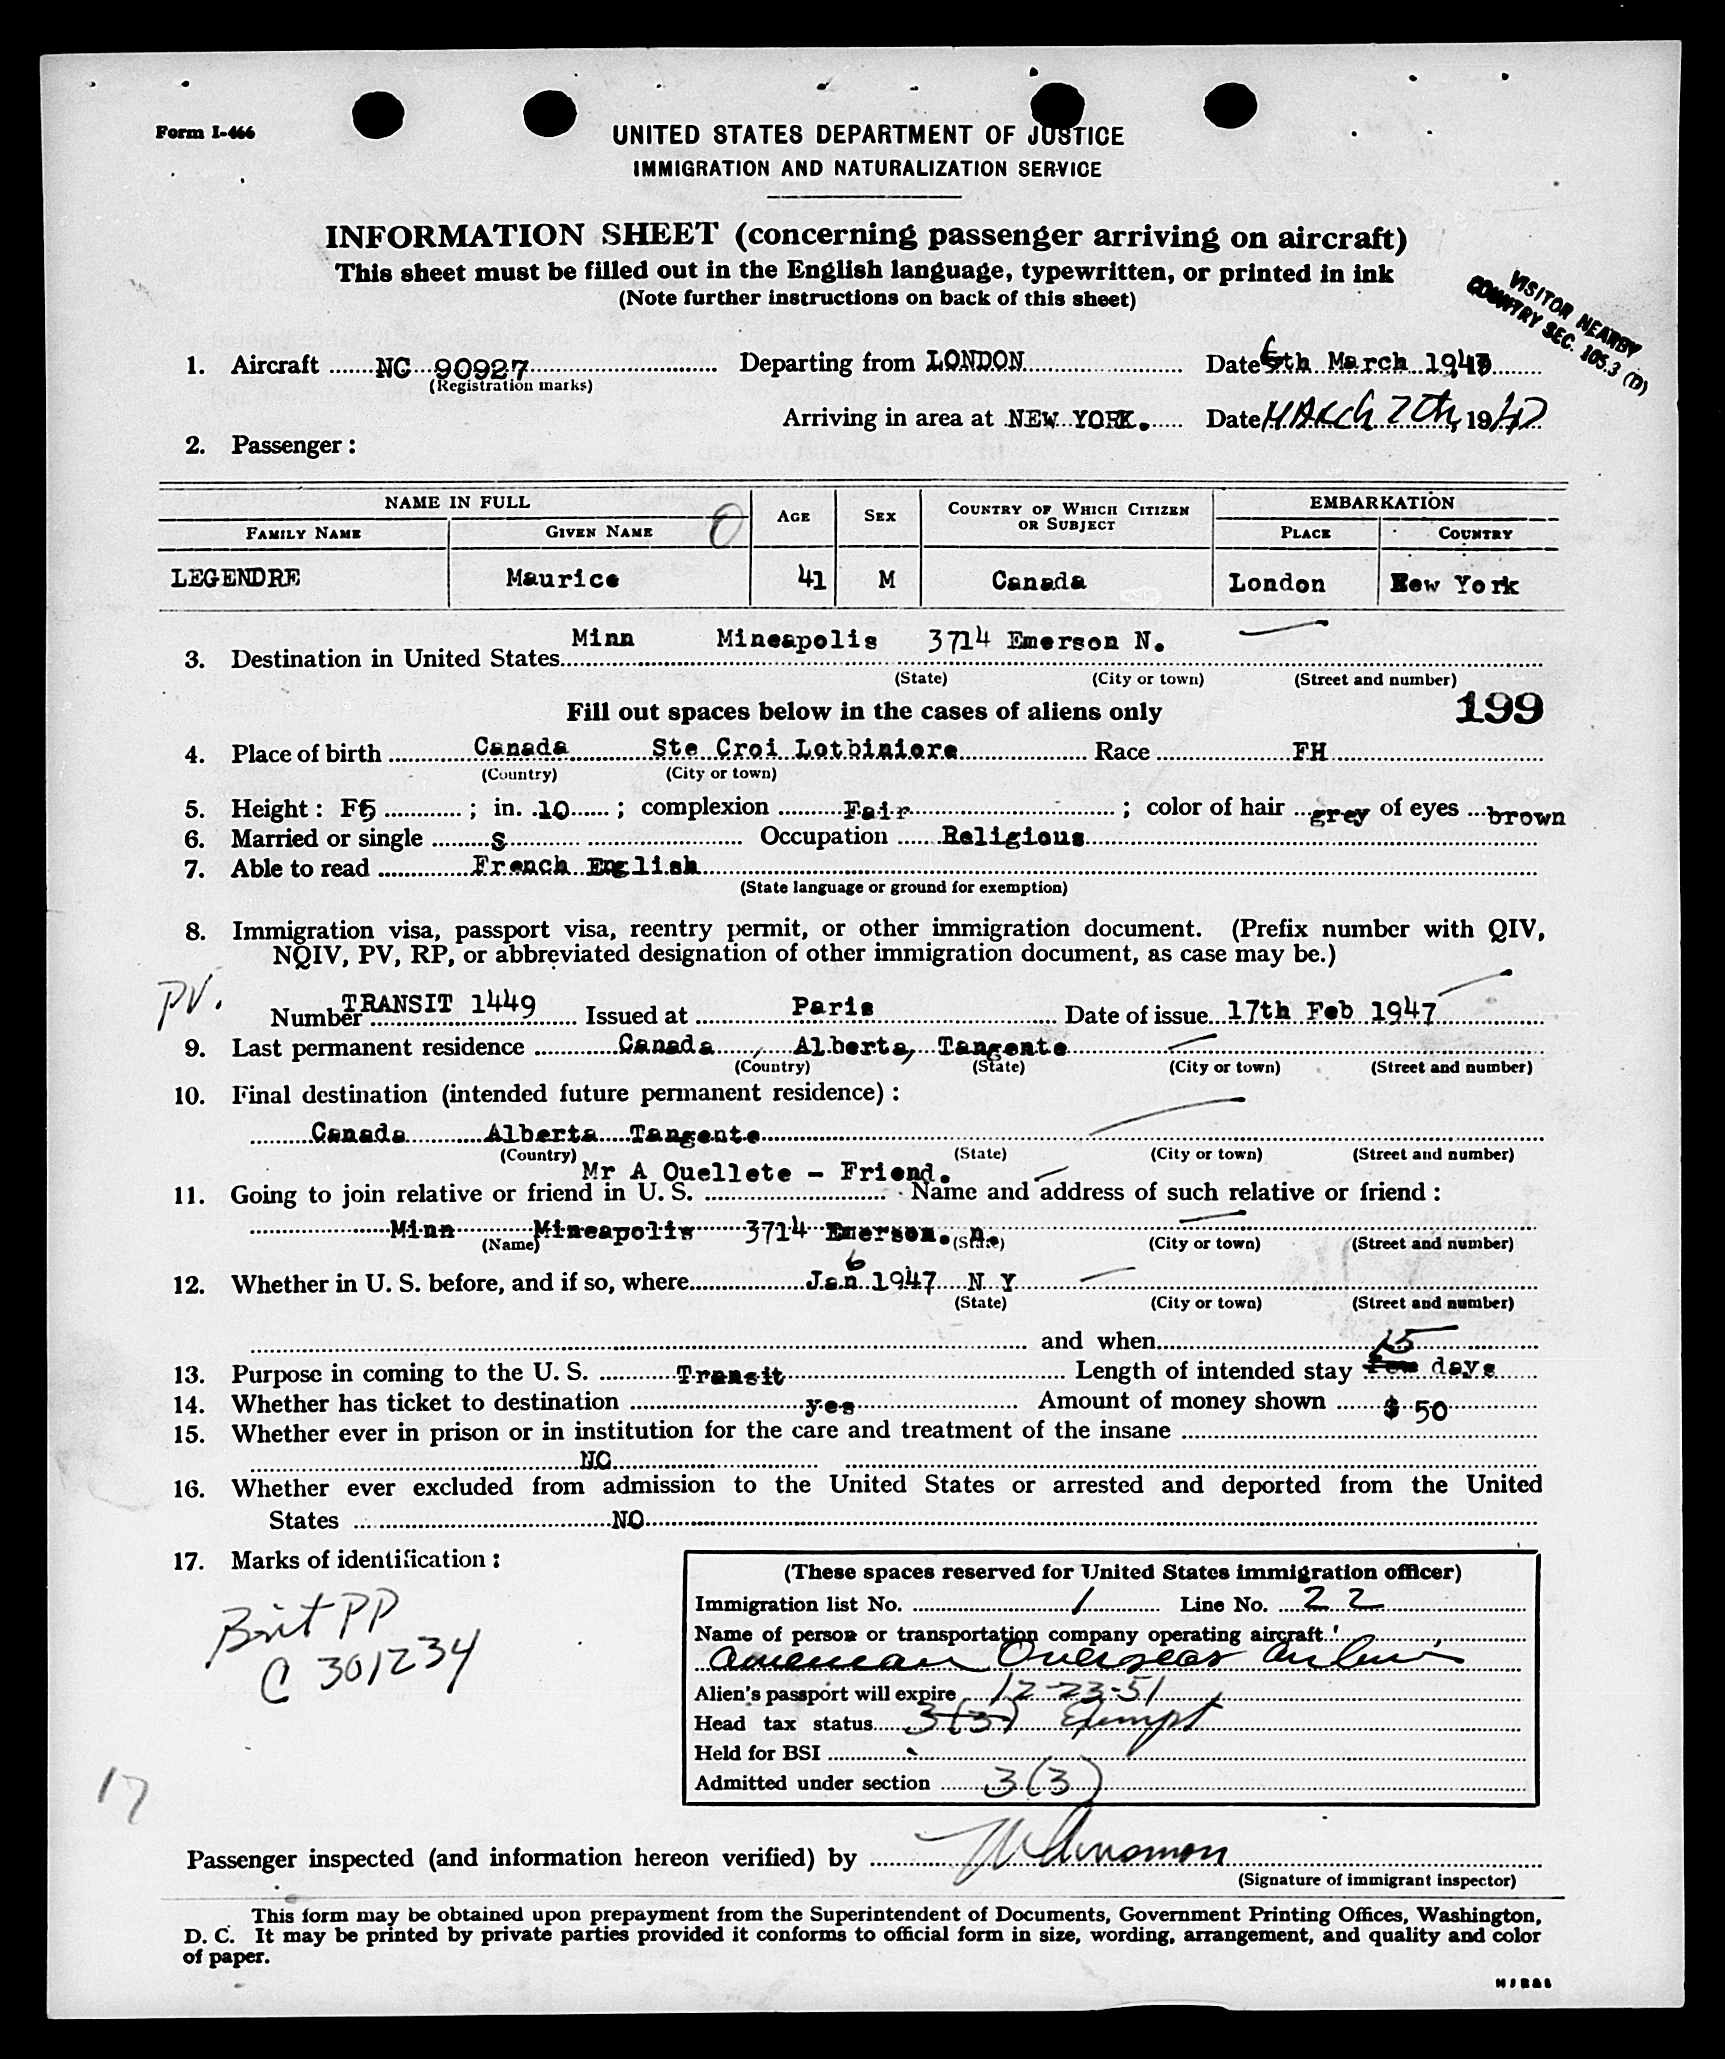 Form I-466
UNITED STATES DEPARTMENT OF JUSTICE
IMMIGRATION AND NATURALIZATION SERVICE
INFORMATION SHEET (concerning passenger arriving on aircraft)
This sheet must be filled out in the English language, typewritten, or printed in ink
(Note further instructions on back of this sheet)
VISITOR NEARBY
COUNTRY SEC. 105.3 (D)
1. Aircraft NC 90927 Departing from LONDON Date 6th March 1947
(Registration marks)
Arriving in area at NEW YORK. Date MARCH 7th, 1947
2. Passenger:
NAME IN FULL AGE SEX COUNTRY OF WHICH CITIZEN OR SUBJECT EMBARKATION
FAMILY NAME GIVEN NAME PLACE COUNTRY
LEGENDRE Maurice 41 M Canada London New York
Minn Mineapolis 3714 Emerson N.
3. Destination in United States
(State) (City or town) (Street and number)
Fill out spaces below in the cases of aliens only 199
4. Place of birth Canada Ste Croi Lotbiniere Race FH
(Country) (City or town)
5. Height: Ft 5 ; in. 10 ; complexion Fair ; color of hair grey of eyes brown
6. Married or single S Occupation Religious
7. Able to read French English
(State language or ground for exemption)
8. Immigration visa, passport visa, reentry permit, or other immigration document. (Prefix number with QIV,
NQIV, PV, RP, or abbreviated designation of other immigration document, as case may be.)
PV. Number TRANSIT 1449 Issued at Paris Date of issue 17th Feb 1947
9. Last permanent residence Canada, Alberta, Tangente
(Country) (State) (City or town) (Street and number)
10. Final destination (intended future permanent residence):
Canada Alberta Tangente
(Country) (State) (City or town) (Street and number)
Mr A Ouellete - Friend.
11. Going to join relative or friend in U. S. Name and address of such relative or friend:
Minn Mineapolis 3714 Emerson. n.
(Name) (State) (City or town) (Street and number)
6
12. Whether in U. S. before, and if so, where Jan 1947 N Y
(State) (City or town) (Street and number)
and when
15
13. Purpose in coming to the U. S. Transit Length of intended stay few days
14. Whether has ticket to destination yes Amount of money shown $ 50
15. Whether ever in prison or in institution for the care and treatment of the insane
NO
16. Whether ever excluded from admission to the United States or arrested and deported from the United
States NO
17. Marks of identification:
Brit PP
C 301234
(These spaces reserved for United States immigration officer)
Immigration list No. 1 Line No. 22
Name of person or transportation company operating aircraft
American Overseas Airlines
Alien's passport will expire 12-23-51
Head tax status 3(3) Exempt
Held for BSI
Admitted under section 3(3)
17
Passenger inspected (and information hereon verified) by
(Signature of immigrant inspector)
This form may be obtained upon prepayment from the Superintendent of Documents, Government Printing Offices, Washington,
D. C. It may be printed by private parties provided it conforms to official form in size, wording, arrangement, and quality and color
of paper.